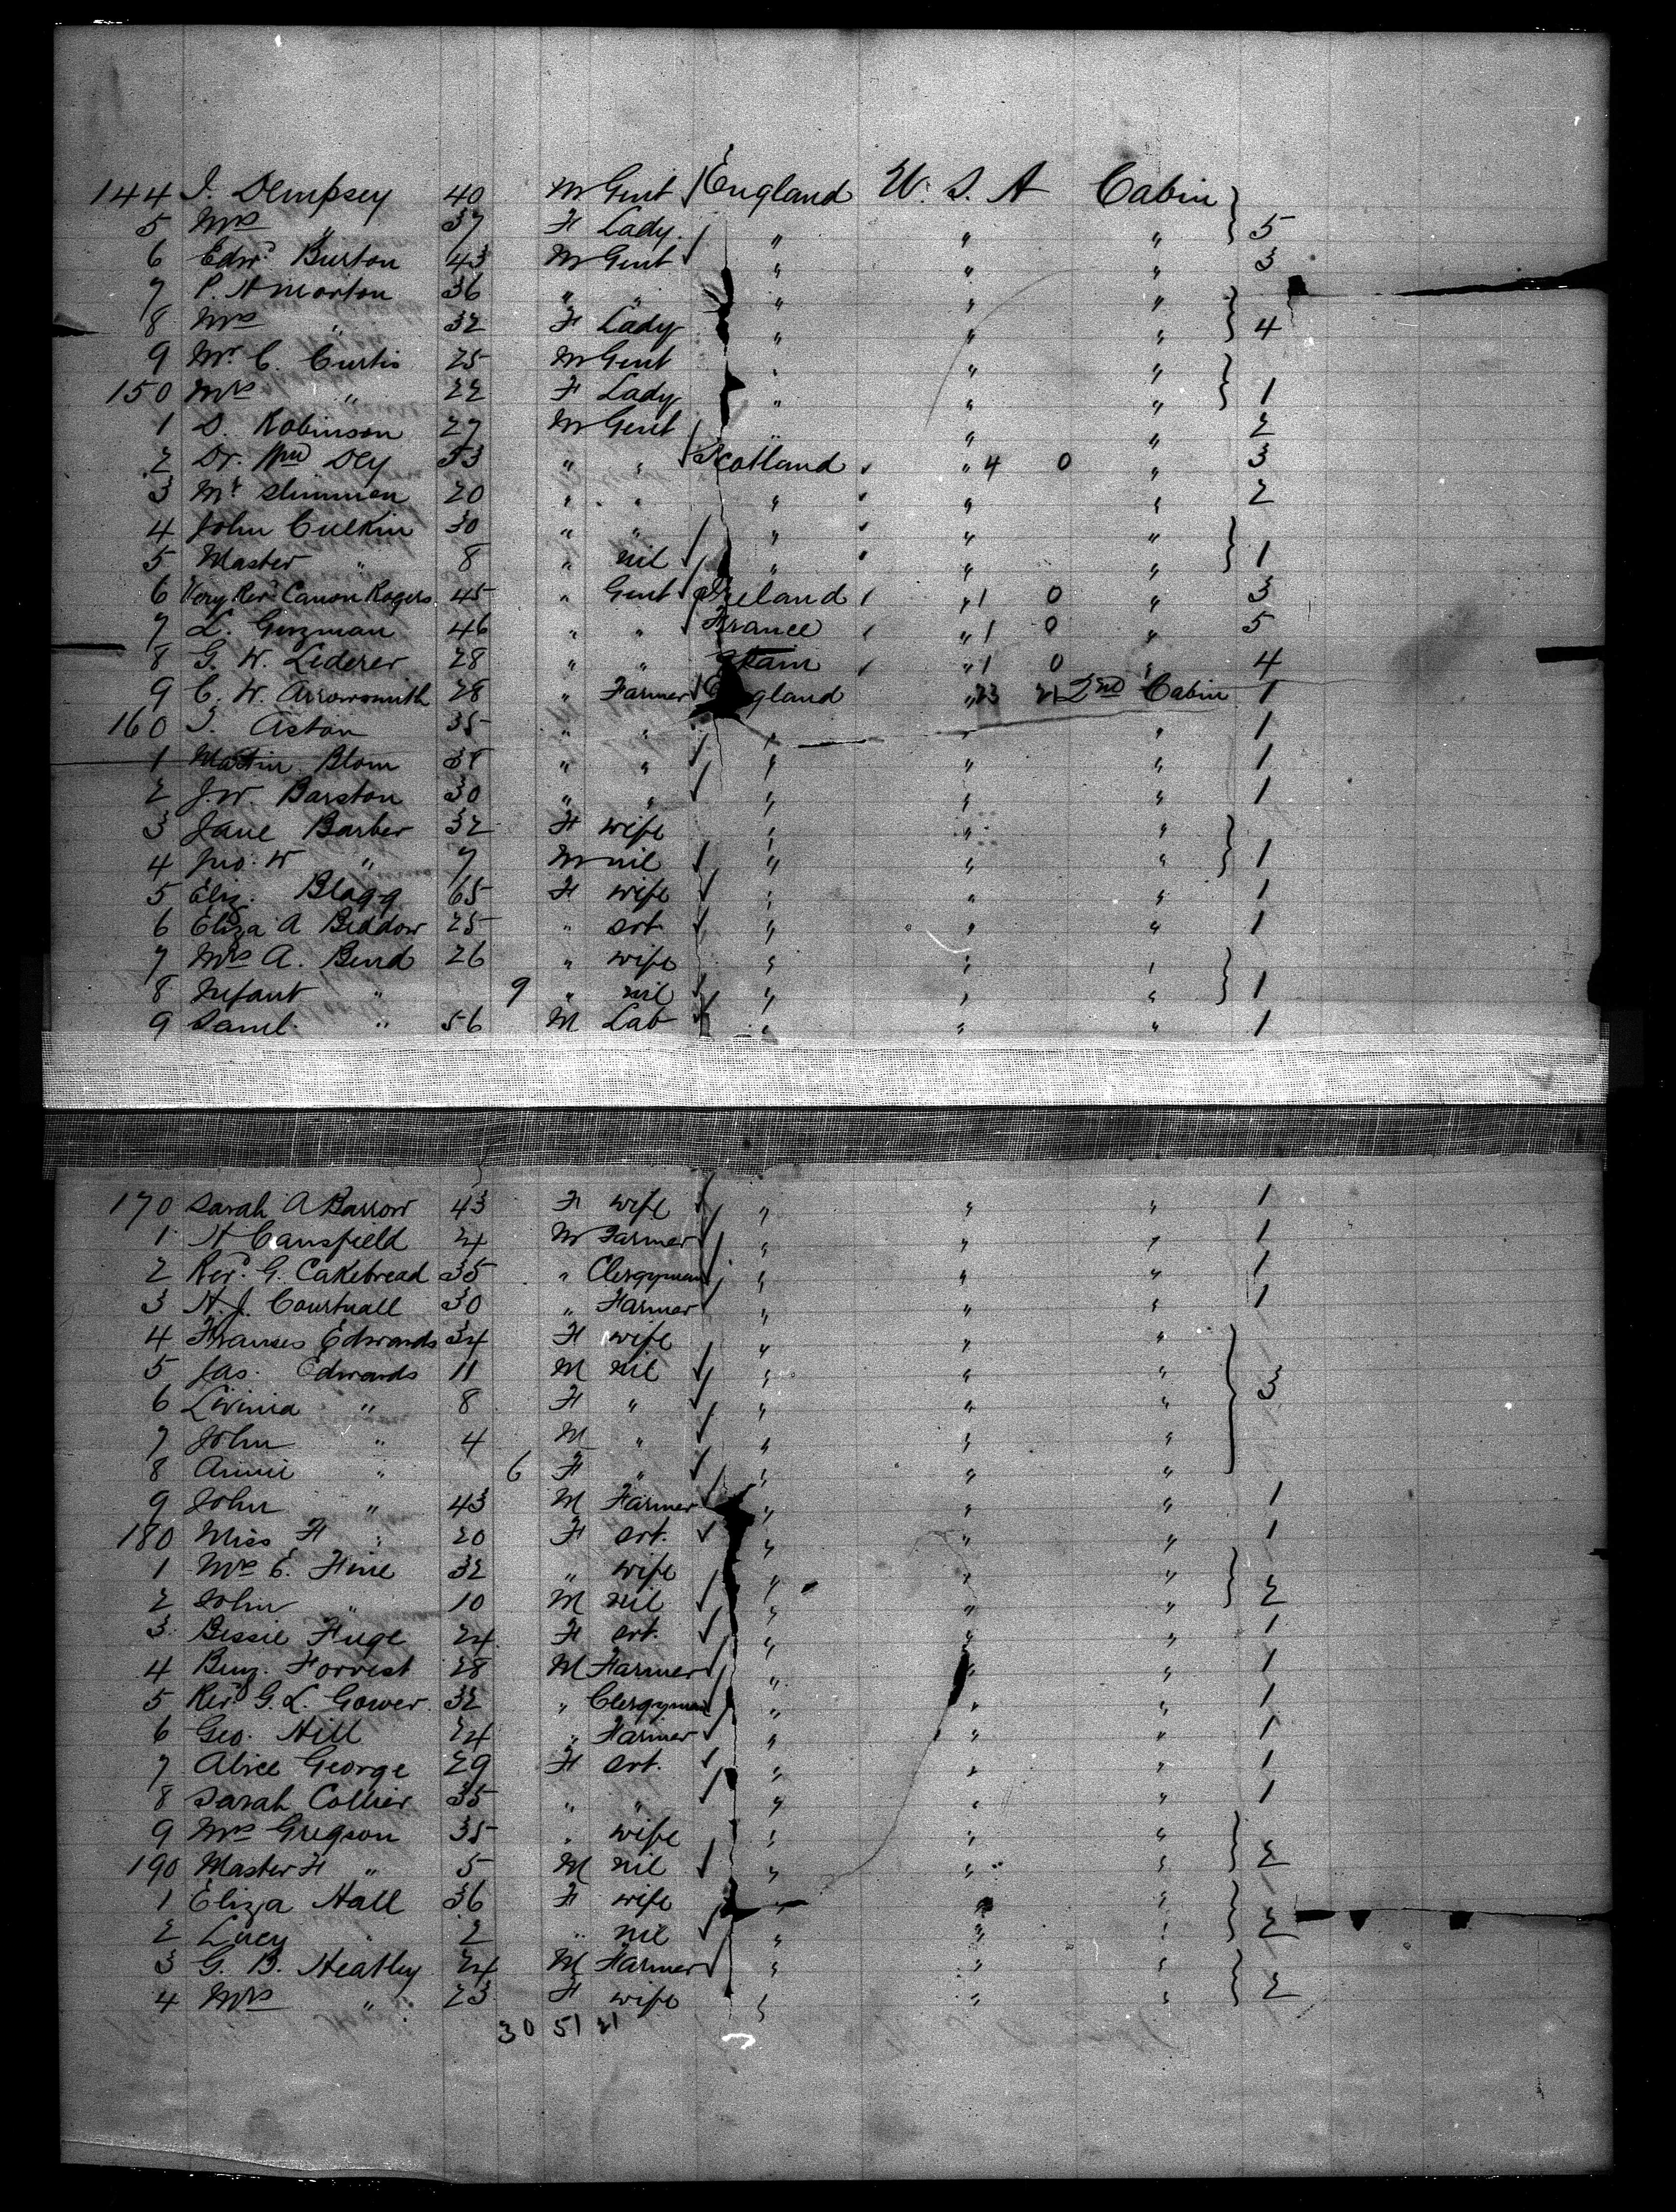 144 J. Dempsey 40 M Gent England U. S. A Cabin
5 Mrs " 37 F Lady " " " 5
6 Edwd. Burton 43 M Gent " " " 3
7 P. H Morton 36 " " " " "
8 Mrs " 32 F Lady " " " 4
9 Mr. C. Curtis 25 M Gent " " "
150 Mrs " 22 F Lady " " " 1
1 D. Robinson 27 M Gent " " " 2
2 Dr. Wm Dey 53 " " Scotland " 4 0 " 3
3 Mr Shimmen 20 " " " " " 2
4 John Culkin 30 " " " " "
5 Master " 8 " nil " " " 1
6 Very Revd Canon Rogers 45 " Gent Ireland " 1 0 " 3
7 L. Guzman 46 " " France " 1 0 " 5
8 G. W. Lederer 28 " " Spain " 1 0 " 4
9 C. W. Arrowsmith 28 " Farmer England " 23 21 2nd Cabin 1
160 J. Aston 35 " " " " " 1
1 Martin Blom 38 " " " " " 1
2 J. W. Barston 30 " " " " " 1
3 Jane Barber 32 F wife " " "
4 Jno. W " 7 M nil " " " 1
5 Eliz. Blagg 65 F wife " " " 1
6 Eliza A Beddow 25 " srt. " " " 1
7 Mrs A. Bend 26 " wife " " "
8 Infant " 9 " nil " " " 1
9 Saml. " 56 M Lab " " " 1
170 Sarah A Barrow 43 F wife " " " 1
1 H Cansfield 24 M Farmer " " " 1
2 Revd. G. Cakebread 35 " Clergyman " " " 1
3 H. J. Courtnall 30 " Farmer " " " 1
4 Franses Edwards 34 F wife " " "
5 Jas. Edwards 11 M nil " " " 3
6 Livinia " 8 F " " " "
7 John " 4 M " " " "
8 Annie " 6 F " " " "
9 John " 43 M Farmer " " " 1
180 Miss F " 20 F srt. " " " 1
1 Mrs E. Fine 32 " wife " " "
2 John " 10 M nil " " " 2
3 Bessie Fuge 24 F srt. " " " 1
4 Benj. Forrest 28 M Farmer " " " 1
5 Revd G. L. Gower 32 " Clergyman " " " 1
6 Geo. Hill 24 " Farmer " " " 1
7 Alice George 29 F srt. " " " 1
8 Sarah Collier 35 " " " " " 1
9 Mrs Gregson 35 " wife " " "
190 Master H " 5 M nil " " " 2
1 Eliza Hall 36 F wife " " "
2 Lucy " 2 " nil " " " 2
3 G. B. Heatley 24 M Farmer " " "
4 Mrs " 23 F wife " " " 2
30 51 21